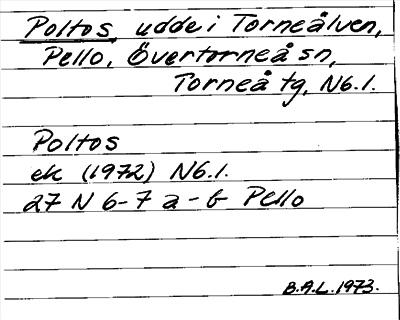 Poltos, udde i Torneälven,
Pello, Övertorneå sn,
Torneå tg, Nb.l.
Poltos
ek (1972) Nb.l.
27 N 6-7 a-b Pello
B.A.L. 1973.